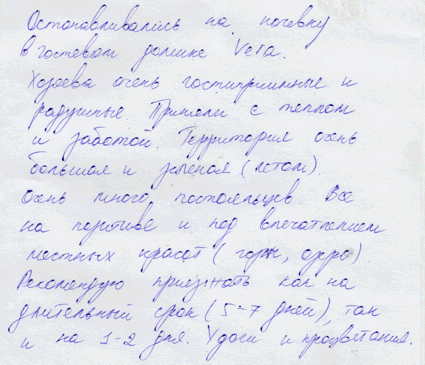 Останавливались на ночевку
в гостевом домике Vera.
Хозяева очень гостиприимные и
радушные. Приняли с теплом
и заботой. Территория очень
большая и зеленая (летом).
Очень много постояльцев. Все
на позитиве и под впечатлением
местных красот (горы, озеро).
Рекомендую приезжать как на
длительный срок (5-7 дней), так
и на 1-2 дня. Удачи и процветания.